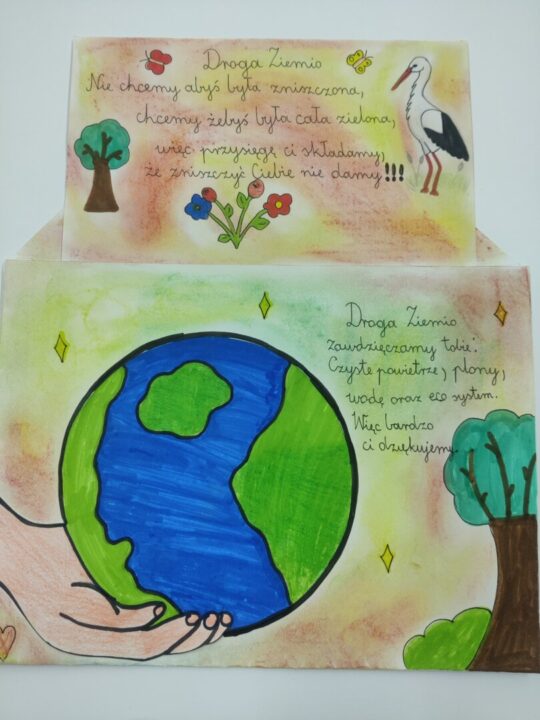 Droga Ziemio
Nie chcemy abyś była zniszczona,
chcemy żebyś była cała zielona,
więc przysięgę ci składamy,
że zniszczyć Ciebie nie damy!!!
Droga Ziemio
zawdzięczamy tobie:
Czyste powietrze, plony,
wodę oraz eco system.
Więc bardzo
ci dziękujemy.